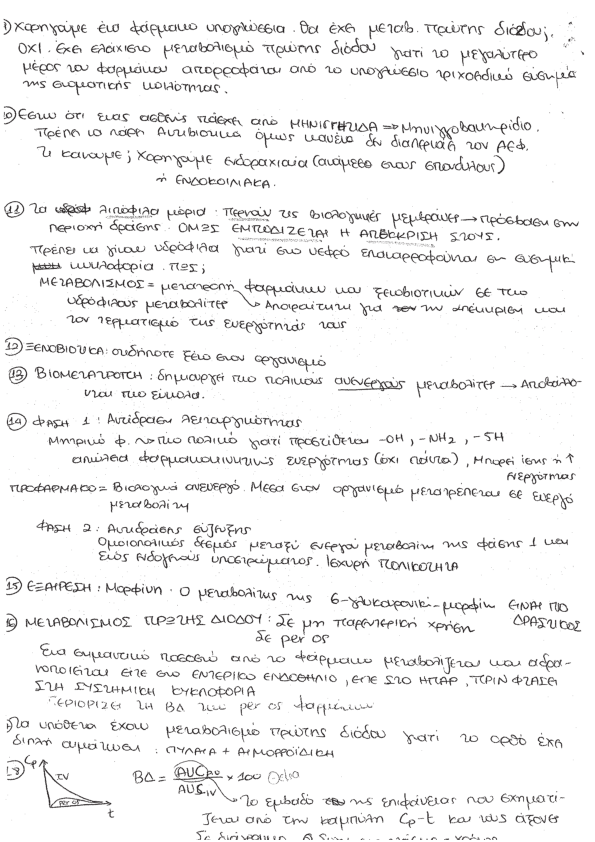 9) Χορηγούμε ένα φάρμακο υπογλώσσια. Θα έχει μεταβ. πρώτης διόδου;
ΟΧΙ. Έχει ελάχιστο μεταβολισμό πρώτης διόδου γιατί το μεγαλύτερο
μέρος του φαρμάκου απορροφάται από το υπογλώσσιο τριχοειδικό σύστημα
της στοματικής κοιλότητας.
10) Έστω ότι ένας ασθενής πάσχει από ΜΗΝΙΓΓΙΤΙΔΑ => Μηνιγγοβακτηρίδιο.
Πρέπει να πάρει Αντιβιοτικά όμως κανένα δεν διαπερνά τον ΑΕΦ.
Τι κάνουμε; Χορηγούμε ενδοραχιαία (ανάμεσα στους σπονδύλους)
ή ΕΝΔΟΚΟΙΛΙΑΚΑ.
11) Τα λιπόφιλα μόρια περνούν τις βιολογικές μεμβράνες → πρόσβαση στην
περιοχή δράσης. ΟΜΩΣ ΕΜΠΟΔΙΖΕΤΑΙ Η ΑΠΕΚΚΡΙΣΗ ΤΟΥΣ.
Πρέπει να γίνουν υδρόφιλα γιατί στο νεφρό επαναρροφούνται στη συστημική
κυκλοφορία. ΠΩΣ;
ΜΕΤΑΒΟΛΙΣΜΟΣ = μετατροπή φαρμάκων και ξενοβιοτικών σε πιο
υδρόφιλους μεταβολίτες → Απαραίτητη για την απέκκριση και
τον τερματισμό της ενεργότητάς τους
12) ΞΕΝΟΒΙΟΤΙΚΑ: οτιδήποτε ξένο στον οργανισμό
13) ΒΙΟΜΕΤΑΤΡΟΠΗ: δημιουργεί πιο πολικούς ανενεργούς μεταβολίτες → Αποβάλλο-
νται πιο εύκολα.
14) ΦΑΣΗ 1: Αντίδραση λειτουργικότητας
Μητρικό φ. → πιο πολικό γιατί προστίθεται -OH, -NH2, -SH
απώλεια φαρμακοκινητικής ενεργότητας (όχι πάντα), Μπορεί ίσης ή ↑
ενεργότητας
ΠΡΟΦΑΡΜΑΚΟ = Βιολογικά ανενεργό. Μέσα στον οργανισμό μετατρέπεται σε ενεργό
μεταβολίτη
ΦΑΣΗ 2: Αντιδράσεις σύζευξης
Ομοιοπολικός δεσμός μεταξύ ενεργού μεταβολίτη της φάσης 1 και
ενός ενδογενούς υποστρώματος. Ισχυρή ΠΟΛΙΚΟΤΗΤΑ
15) ΕΞΑΙΡΕΣΗ: Μορφίνη. Ο μεταβολίτης της 6-γλυκουρονική-μορφίνη ΕΙΝΑΙ ΠΙΟ
ΔΡΑΣΤΙΚΟΣ
16) ΜΕΤΑΒΟΛΙΣΜΟΣ ΠΡΩΤΗΣ ΔΙΟΔΟΥ: Σε μη παρεντερική χρήση
Σε per os
Ένα σημαντικό ποσοστό από το φάρμακο μεταβολίζεται και αδρα-
νοποιείται είτε στο ΕΝΤΕΡΙΚΟ ΕΝΔΟΘΗΛΙΟ, ΕΙΤΕ ΣΤΟ ΗΠΑΡ, ΠΡΙΝ ΦΤΑΣΕΙ
ΣΤΗ ΣΥΣΤΗΜΙΚΗ ΚΥΚΛΟΦΟΡΙΑ
ΠΕΡΙΟΡΙΖΕΙ ΤΗ ΒΔ των per os φαρμάκων
Τα υπόθετα έχουν μεταβολισμό πρώτης διόδου γιατί το ορθό έχει
διπλή αιμάτωση: ΠΥΛΑΙΑ + ΑΙΜΟΡΡΟΪΔΙΚΗ
18) Cp IV per os t
ΒΔ = AUC po / AUC IV × 100
Το εμβαδό της επιφάνειας που σχηματί-
ζεται από την καμπύλη Cp-t και τους άξονες